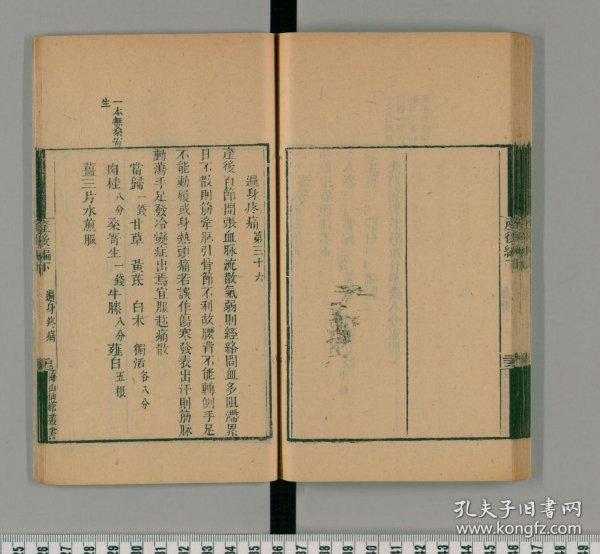 遍身疼痛 第三十六
產後百節開張血脉流散氣弱則經絡間血多阻滯累
日不散則筋牽脉引骨節不利故腰背不能轉側手足
不能動履或身熱頭痛若誤作傷寒發表出汗則筋脉
動蕩手足發冷變症出焉宜服趂痛散
當歸一錢 甘草 黃芪 白朮 獨活各八分
肉桂八分 桑寄生一錢 牛膝八分 薤白五根
薑三片水煎服
一本無桑寄
生
產後編下
遍身疼痛
海山仙館叢書
產後編下
孔夫子旧书网
www.kongfz.com
25 26 27 28 29 30 31 32 33 34 35 36 37 38 39 40 41 42 43 44 45 46 47 48 49